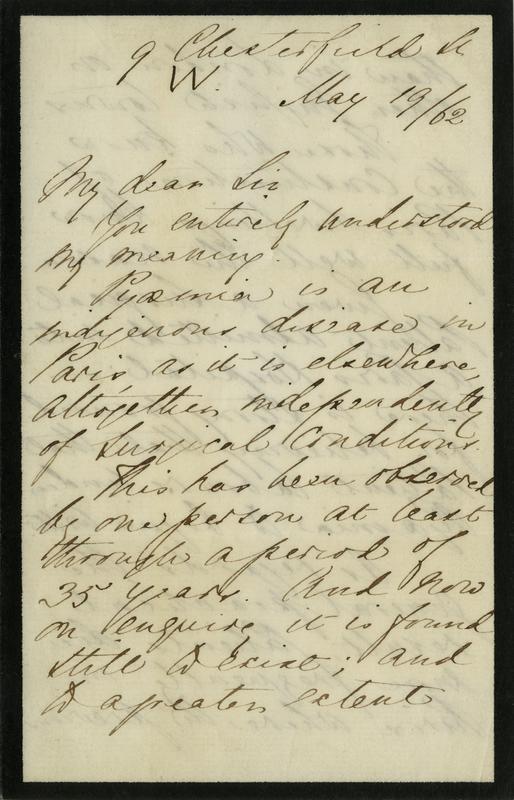 9 Chesterfield St
W.
May 19/62
My dear Sir
You entirely understood
my meaning.
Pyæmia is an
indigenous disease in
Paris, as it is elsewhere,
altogether independently
of Surgical Conditions.
This has been observed
by one person at least
through a period of
35 years. And now
on enquiry it is found
still to exist; and
to a greater extent